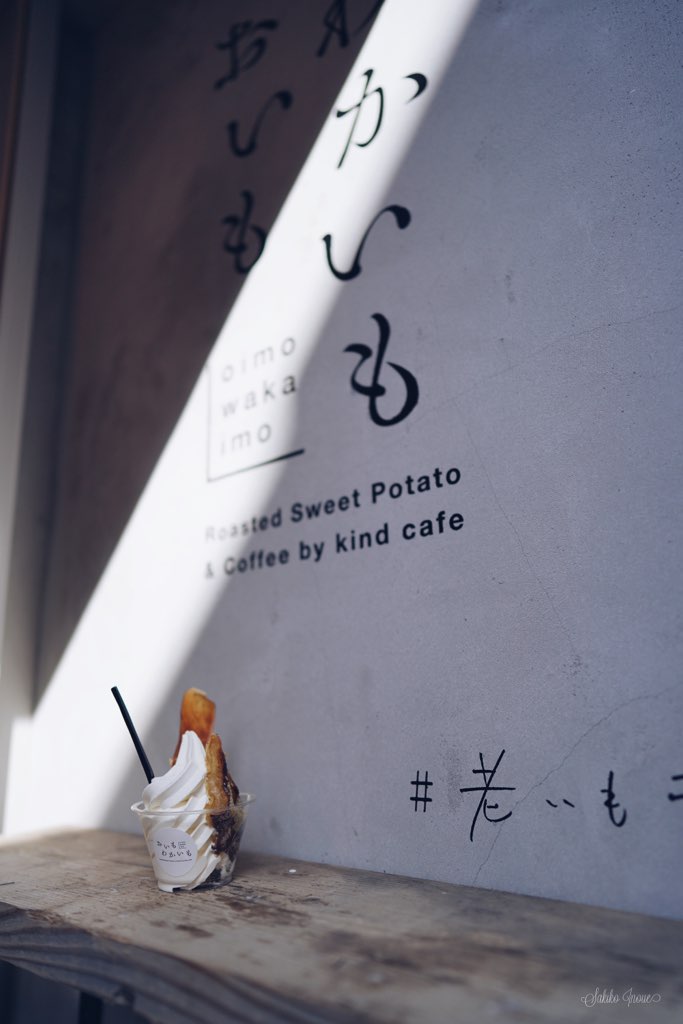 おいも
かいも
oimo
waka
imo
Roasted Sweet Potato
& Coffee by kind cafe
#老いも
おいも
わかいも
Sakiko Inoue